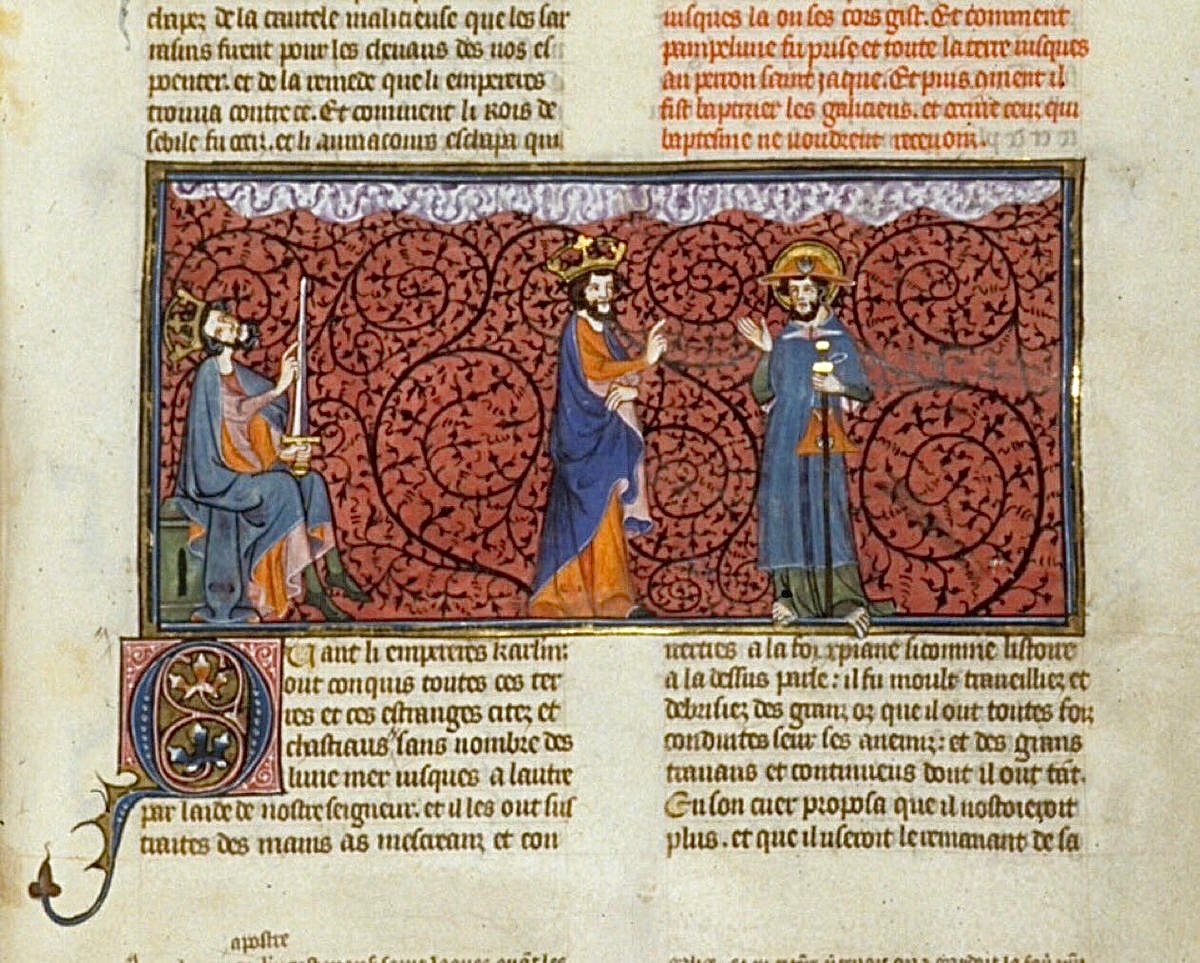 chapez de la cautele malicieuse que les sar
rasins firent pour les chevaus des nos es
poenter. et de la remede que li empereres
trouva contre ce. Et comment li rois de
sebile fu occis. et li aumacours eschapa qui
iusques la ou ses cors gist. Et comment
pampelune fu prise et toute la terre iusques
au perron saint jaque. Et puis coment il
fist baptizier les galiciens. et occist ceux qui
baptesme ne voudrent recevoir.
Quant li empereres karlm
out conquis toutes ces ter
res et ces estranges citez et
chastiaus sans nombre des
lune mer iusques a lautre
par laide de nostre seigneur. et il les out sus
traites des mains as mescreanz et con
verties a la foy xpiane si comme listoire
a la dessus parle: il fu moult travelliez et
debrisiez des granz oz que il out toutes foiz
conduites seur ses anemis: et des grans
travaus et continueus dont il out tant.
En son cuer proposa que il nostoieroit
plus. et que il useroit le remanant de sa
apostre